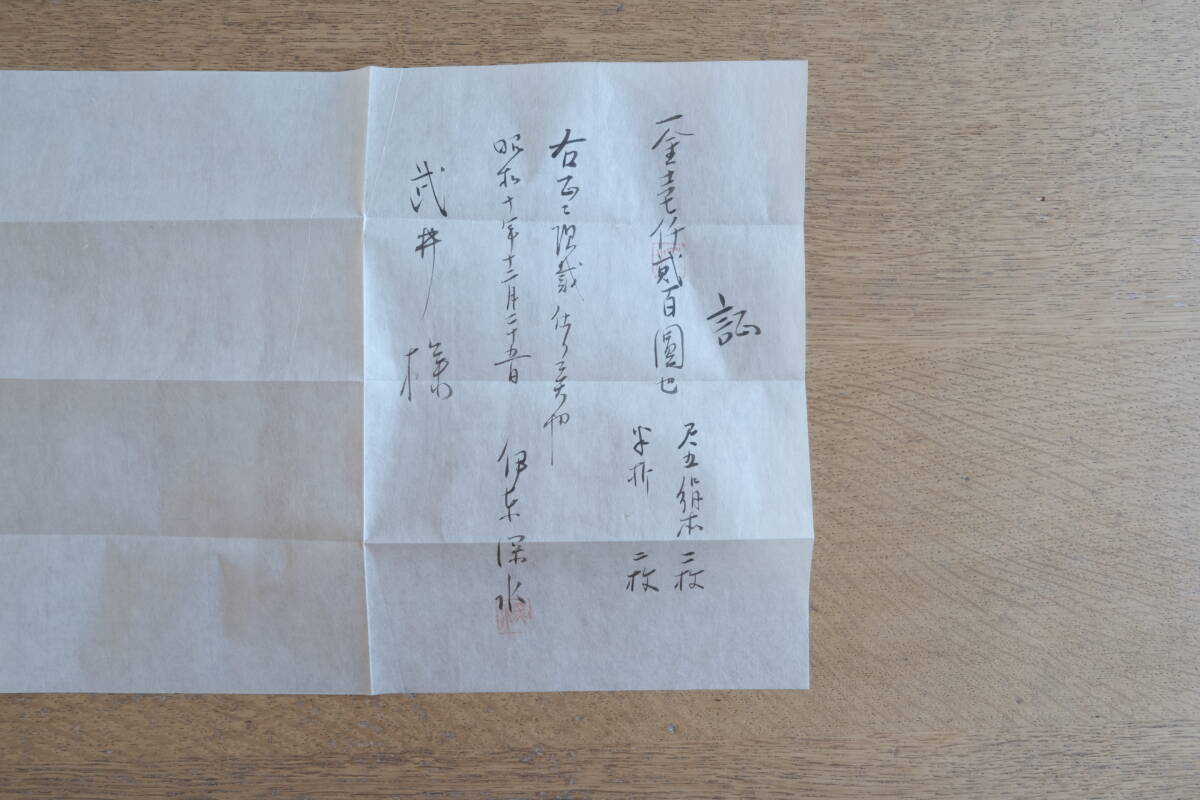 証
一金壱仟貳百圓也
尺五絹本 二枚
半折 二枚
右正ニ領戴仕り候也
昭和十年十二月二十五日
伊東深水
武井様